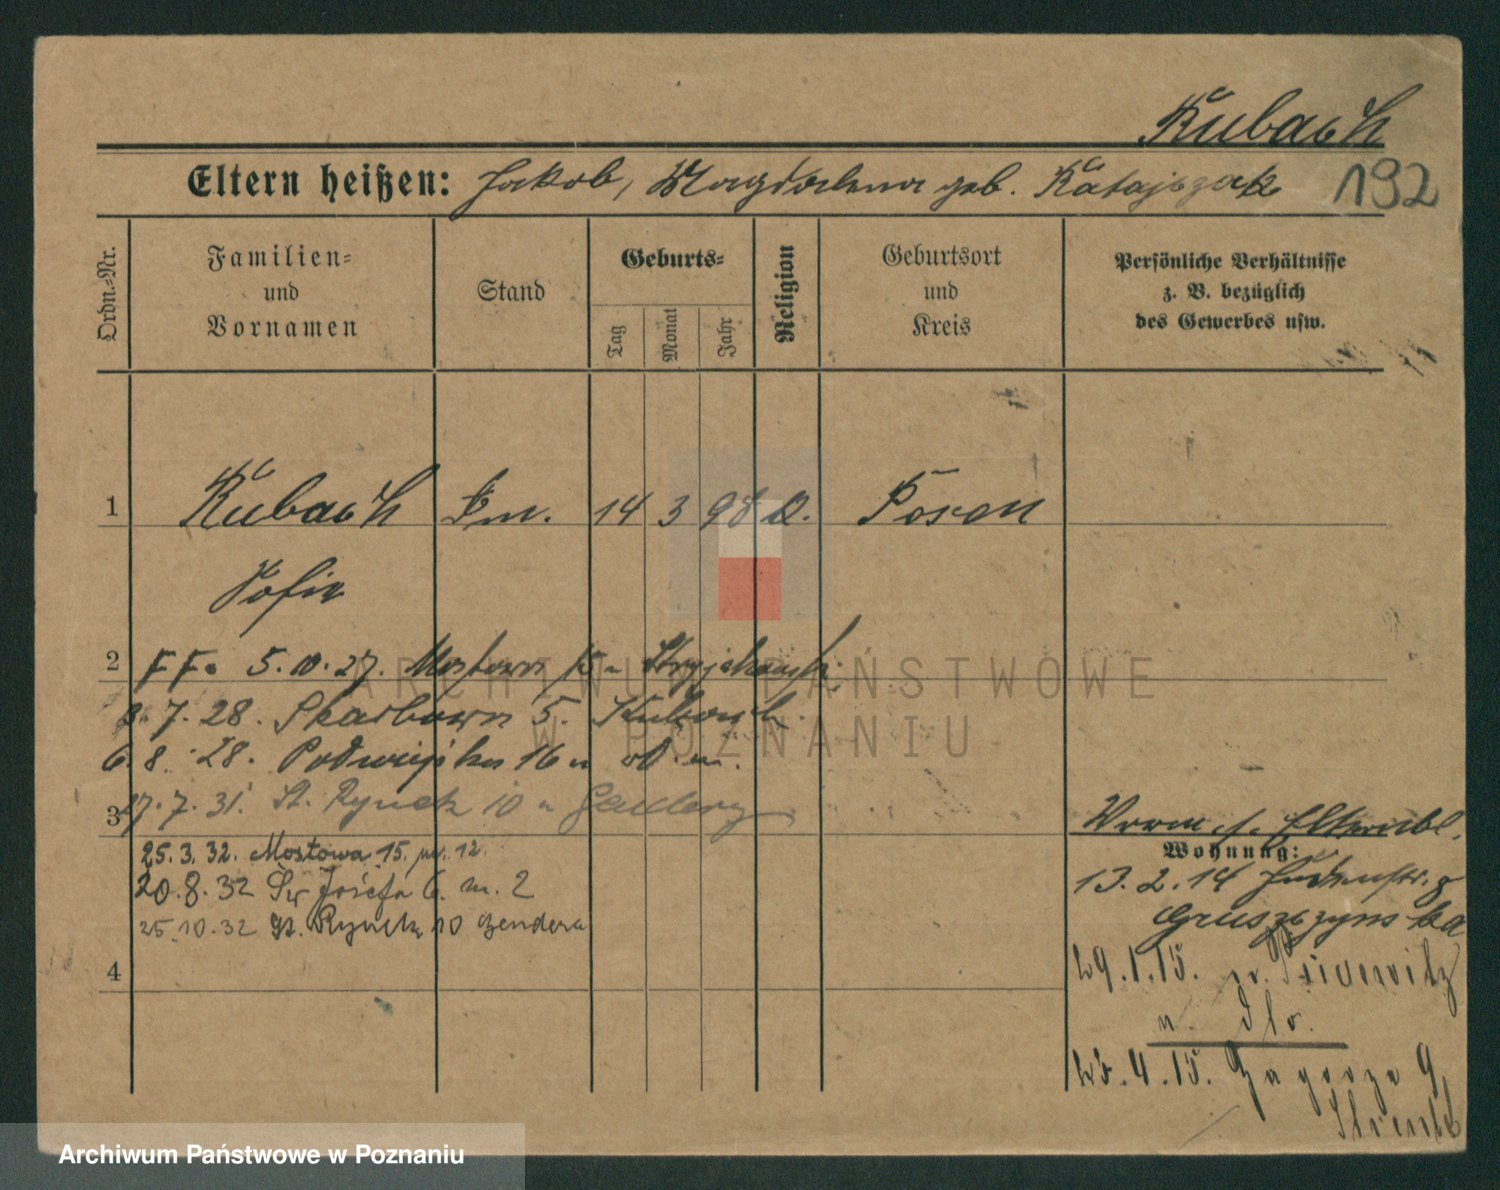 Kubach
Eltern heißen: Jakob, Magdalena geb. Ratajczak 192
Ordn.-Nr.
Familien-
und
Vornamen
Stand
Geburts-
Tag
Monat
Jahr
Religion
Geburtsort
und
Kreis
Persönliche Verhältnisse
z. B. bezüglich
des Gewerbes usw.
1 Kubach 14 3 98 Posen
Sofia
2 5.10.27. Mostowa
7.28. Skarbowa 5. Kubach
6.8.28. 16
3 27.7.31. St. Rynek 10
25.3.32. Mostowa 15. 12.
20.8.32 Św Józefa 6. m. 2
25.10.32 St. Rynek 10 Gendera
4
Wohnung:
13.2.14 Judenstr. 8
Gruszczynska
29.1.15.
n. dto.
4.15. Zagorze 9
ARCHIWUM PAŃSTWOWE
W POZNANIU
Archiwum Państwowe w Poznaniu